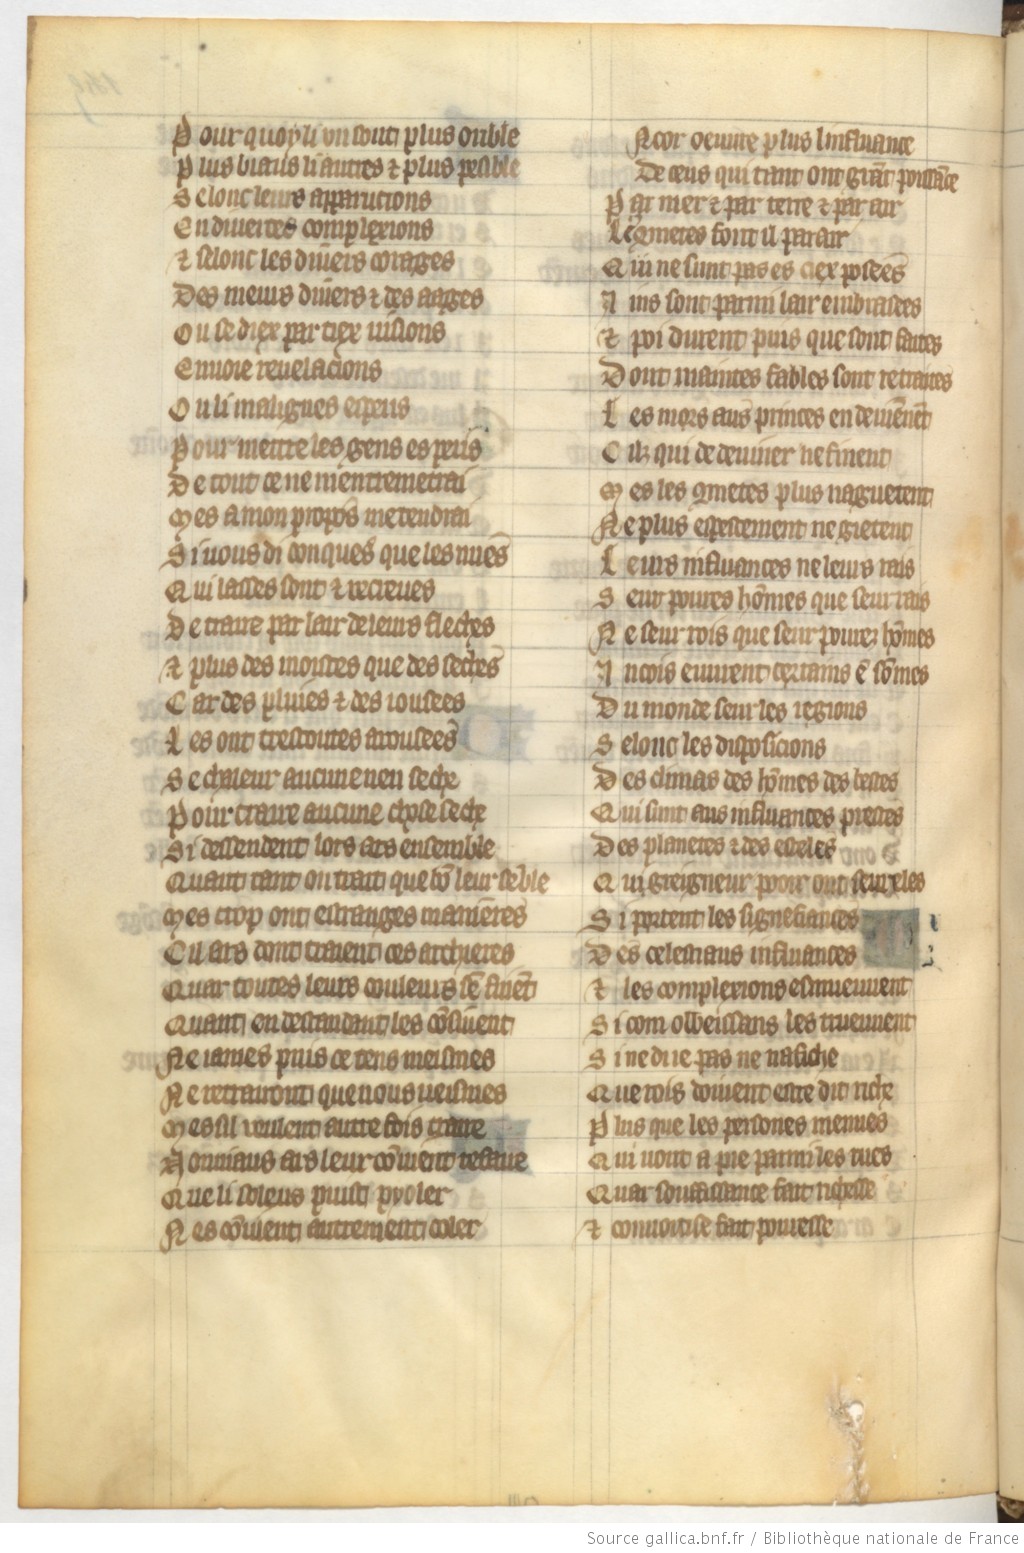 Pour quoy li un sont plus orrible
Plus biaus li autres ⁊ plus pesible
Selonc leurs apparucions
En diuerses complexions
⁊ selonc les diuers corages
Des meurs diuers ⁊ des aages
Ou se diex par tiex uisions
Enuoie reuelacions
Ou li malignes esperis
Pour mettre les gens es peris
De tout ce ne mentremetrai
Mes a mon propos me tendrai
Si uous di donques que les nues
Qui lasses sont ⁊ recreues
De traire par lair de leurs fleches
⁊ plus des moistes que des seches
Car des pluies ⁊ des rousees
Les ont trestoutes arousees
Se chaleur aucune nen seche
Pour traire aucune chose seche
Si destendent lors ars ensemble
Quant tant ont trait que bō leur sēble
Mes trop ont estranges manieres
Cil ars dont traient ces archieres
Quar toutes leurs couleurs sē fuiēt
Quant en destendant les cōsiuent
Ne iames puis ce tens meismes
Ne retrairont que nous ueismes
Mes sil ueulent autre fois traire
Nouuiaus ars leur cōuient refaire
Que li soleus puist pyoler
Nes cōuient autrement doler
Ncor oeuure plus linfluance
De ceus qui tant ont grāt poissāce
Par mer ⁊ par terre ⁊ par air
Les 9metes font il parair
Qui ne sunt pas es ciex posees
Ains sont parmi lair embrasees
⁊ poi durent puis que sont faites
Dont maintes fables sont retraites
Les mors aus princes en deuienēt
Cilz qui de deuiner ne finent
Mes les 9metes plus naguetent
Ne plus espessement ne gietent
Leurs influances ne leurs rais
Seur poures hōmes que seur rais
Ne seur rois que seur pourez hōmes
Aincois euurent certains ē sōmes
Du monde seur les regions
Selonc les disposicions
Des climas des hōmes des bestes
Qui sunt aus influances prestes
Des planetes ⁊ des esteles
Qui greigneur pooir ont seur eles
Si portent les signefiances
Des celestiaus influances
⁊ les complexions esmueuuent
Si com obeissans les trueuuent
Si ne die pas ne nafiche
Que rois doiuent estre dit riche
Plus que les persones menues
Qui uont a pie parmi les rues
Quar souffissance fait richesse
⁊ conuoitise fait pouresse
Source gallica.bnf.fr / Bibliothèque nationale de France